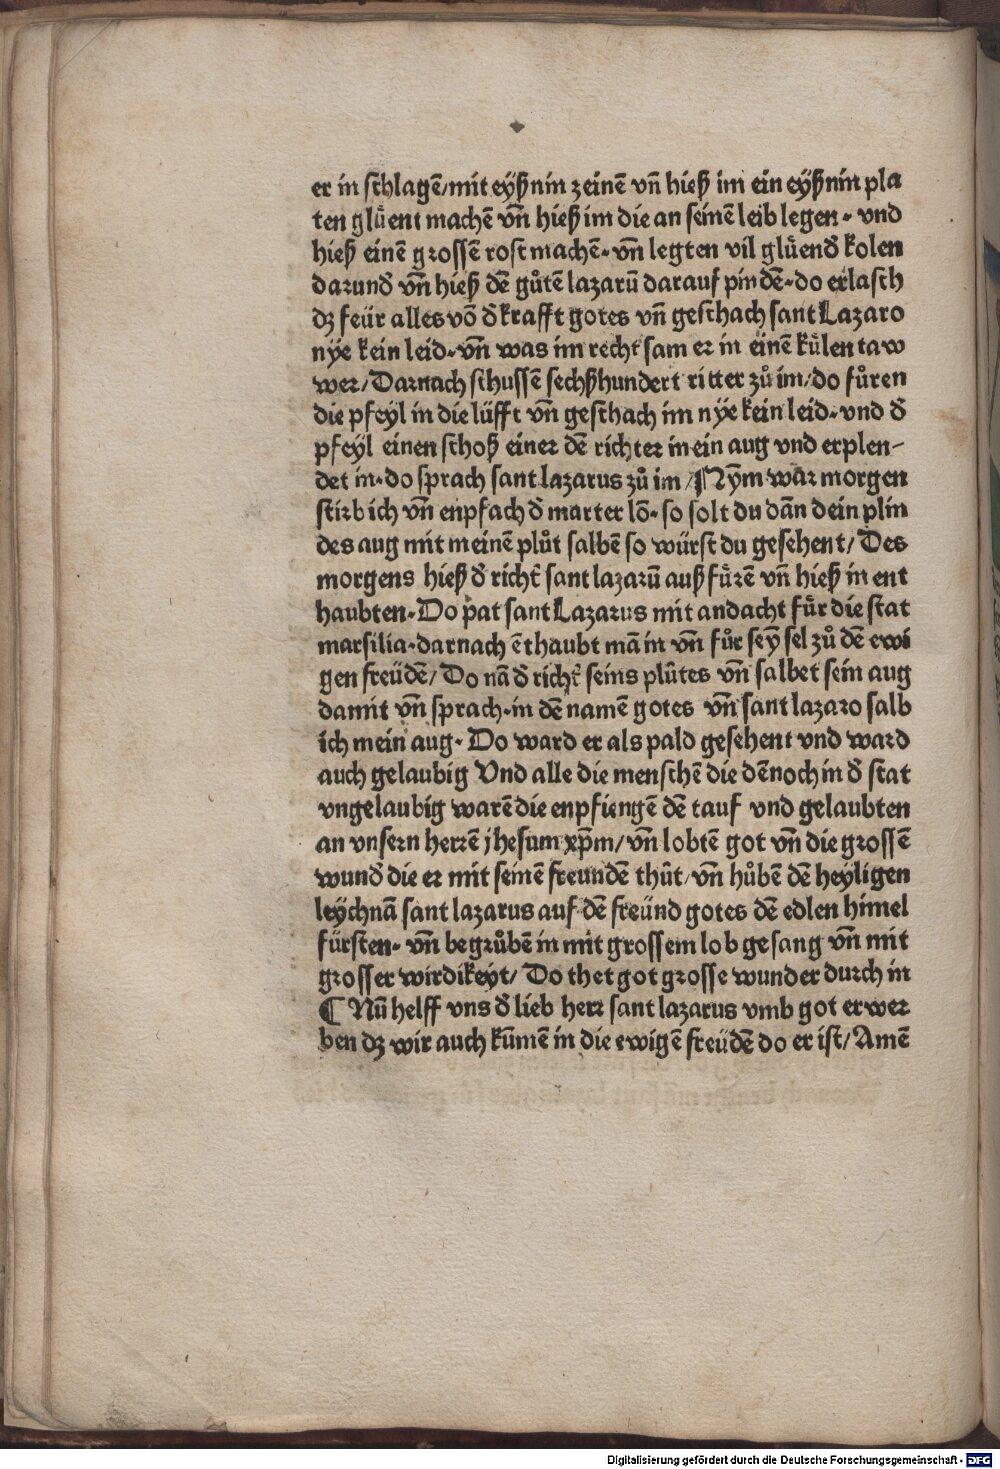 er in schlagē/mit eyßnin zeinē vñ hieß im ein eyßnin pla
ten glüent machē vñ hieß im die an seinē leib legen· vnd
hieß einē grossē rost machē· vñ legten vil glüenð kolen
darunð vñ hieß dē gůtē lazarū darauf pindē·do erlasch
dz feür alles võ ð krafft gotes vñ geschach sant Lazaro
nye kein leid·vñ was im recht sam er in einē külen taw
wer/Darnach schussē sechßhundert ritter zů im/do fůren
die pfeyl in die lüfft vñ geschach im nye kein leid·vnd ð
pfeyl einen schoß einer dē richter in ein aug vnd erplen-
det in·do sprach sant lazarus zů im/Nym war morgen
stirb ich vñ enpfach ð marter lõ·so solt du dān dein plin
des aug mit meinē plůt salbē so würst du gesehent/Des
morgens hieß ð richt̄ sant lazarū außfürē vñ hieß in ent
haubten·Do pat sant Lazarus mit andacht für die stat
marsilia·darnach ēthaubt mā in vñ fůr sey̅ sel zů dē ewi
gen freüdē/Do nā ð richt̄ seins plůtes vñ salbet sein aug
damit vñ sprach·in dē namē gotes vñ sant lazaro salb
ich mein aug·Do ward er als pald gesehent vnd ward
auch gelaubig Vnd alle die menschē die dēnoch in ð stat
vngelaubig warē die enpfiengē dē tauf vnd gelaubten
an vnsern herrē jhesum xp̄m/vñ lobtē got vñ die grossē
wunð die er mit seinē freundē thůt/vñ hůbē dē heyligen
leychnā sant lazarus auf dē freünd gotes dē edlen himel
fürsten·vñ begrůbē in mit grossem lobgesang vñ mit
grosser wirdikeyt/Do thet got grosse wunder durch in
¶ Nū helff vns ð lieb herr sant lazarus vmb got erwer
ben dz wir auch kūmē in die ewigē freüdē do er ist/Amē
Digitalisierung gefördert durch die Deutsche Forschungsgemeinschaft - DFG